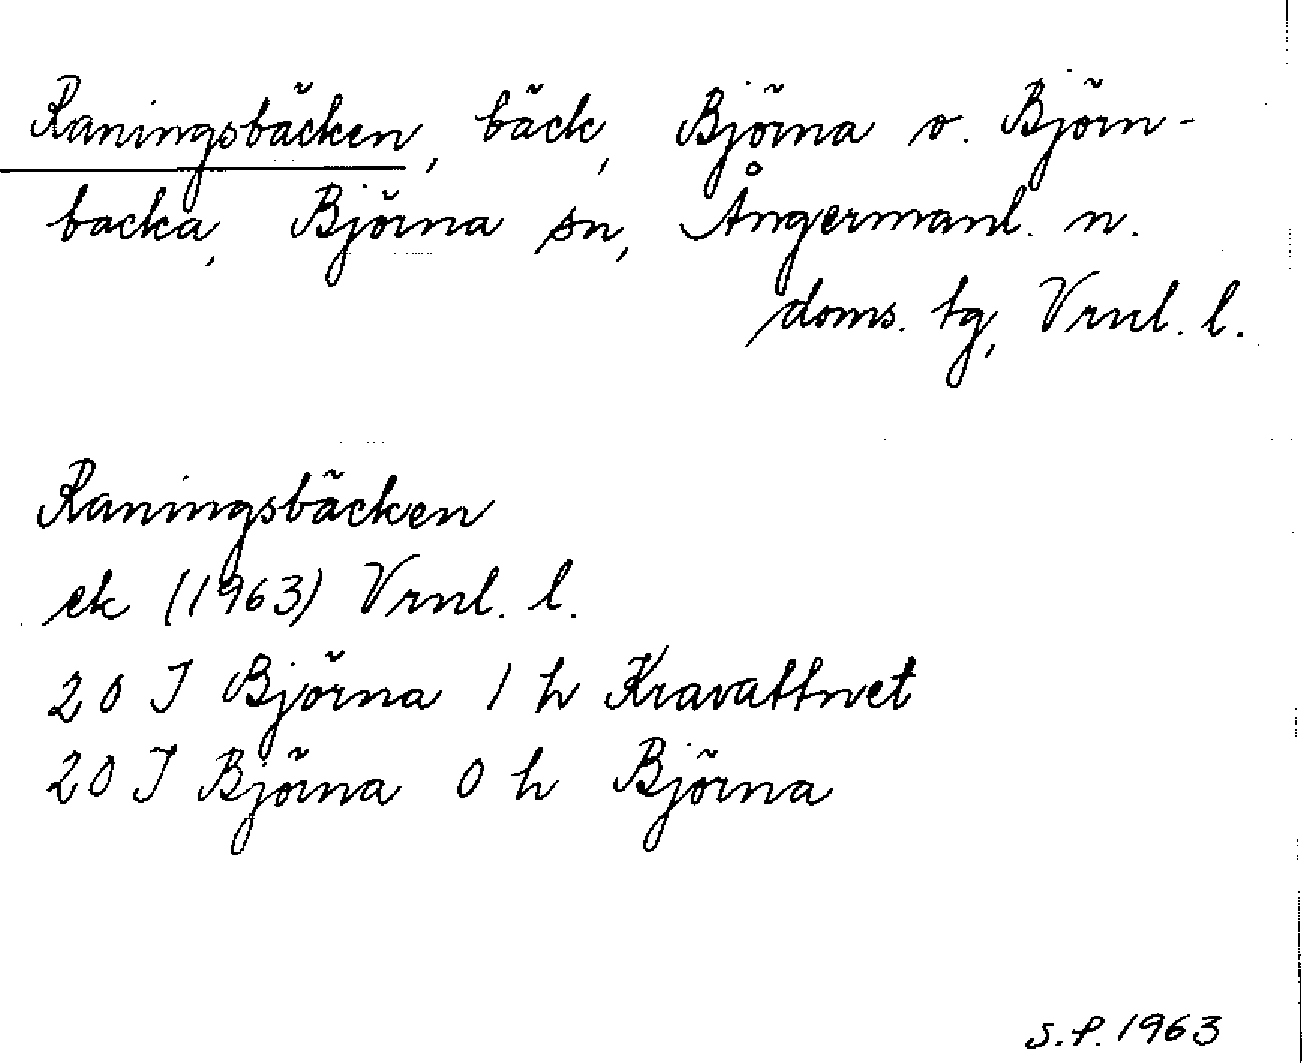 Raningsbäcken, bäck, Björna o. Björn-
backa, Björna sn, Ångermanl. n.
doms. tg, Vrnl. l.
Raningsbäcken
ek (1963) Vrnl. l.
20 I Björna 1 h Kravattnet
20 I Björna 0 h Björna
S.P. 1963